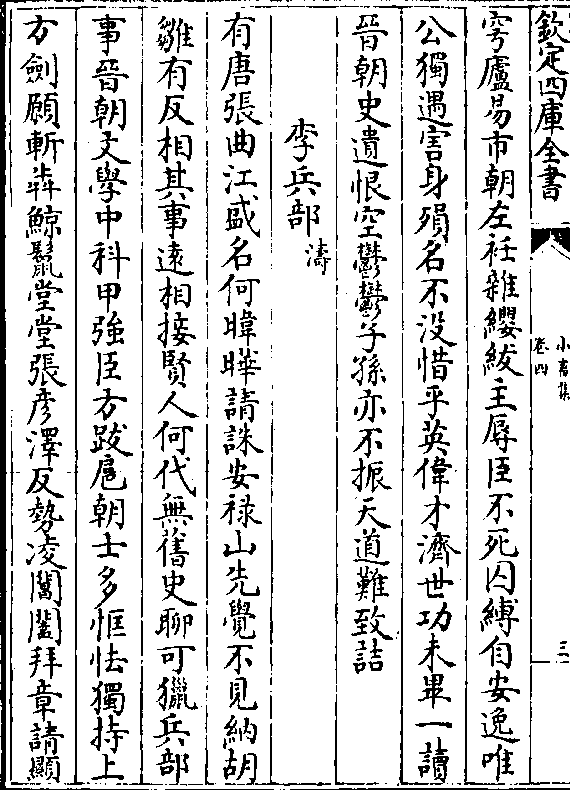 欽定四庫全書
小畜集
卷四
三
穹廬易市朝左衽雜纓紱主辱臣不死囚縛自安逸唯
公獨遇害身殞名不没惜乎英偉才濟世功未畢一讀
晉朝史遺恨空鬱鬱子孫亦不振天道難致詰
李兵部濤
有唐張曲江盛名何暐曄請誅安禄山先覺不見納胡
雛有反相其事遠相接賢人何代無舊史聊可獵兵部
事晉朝文學中科甲強臣方跋扈朝士多恇怯獨持上
方劍願斬犇鯨鬛堂堂張彦澤反勢凌閶闔拜章請顯